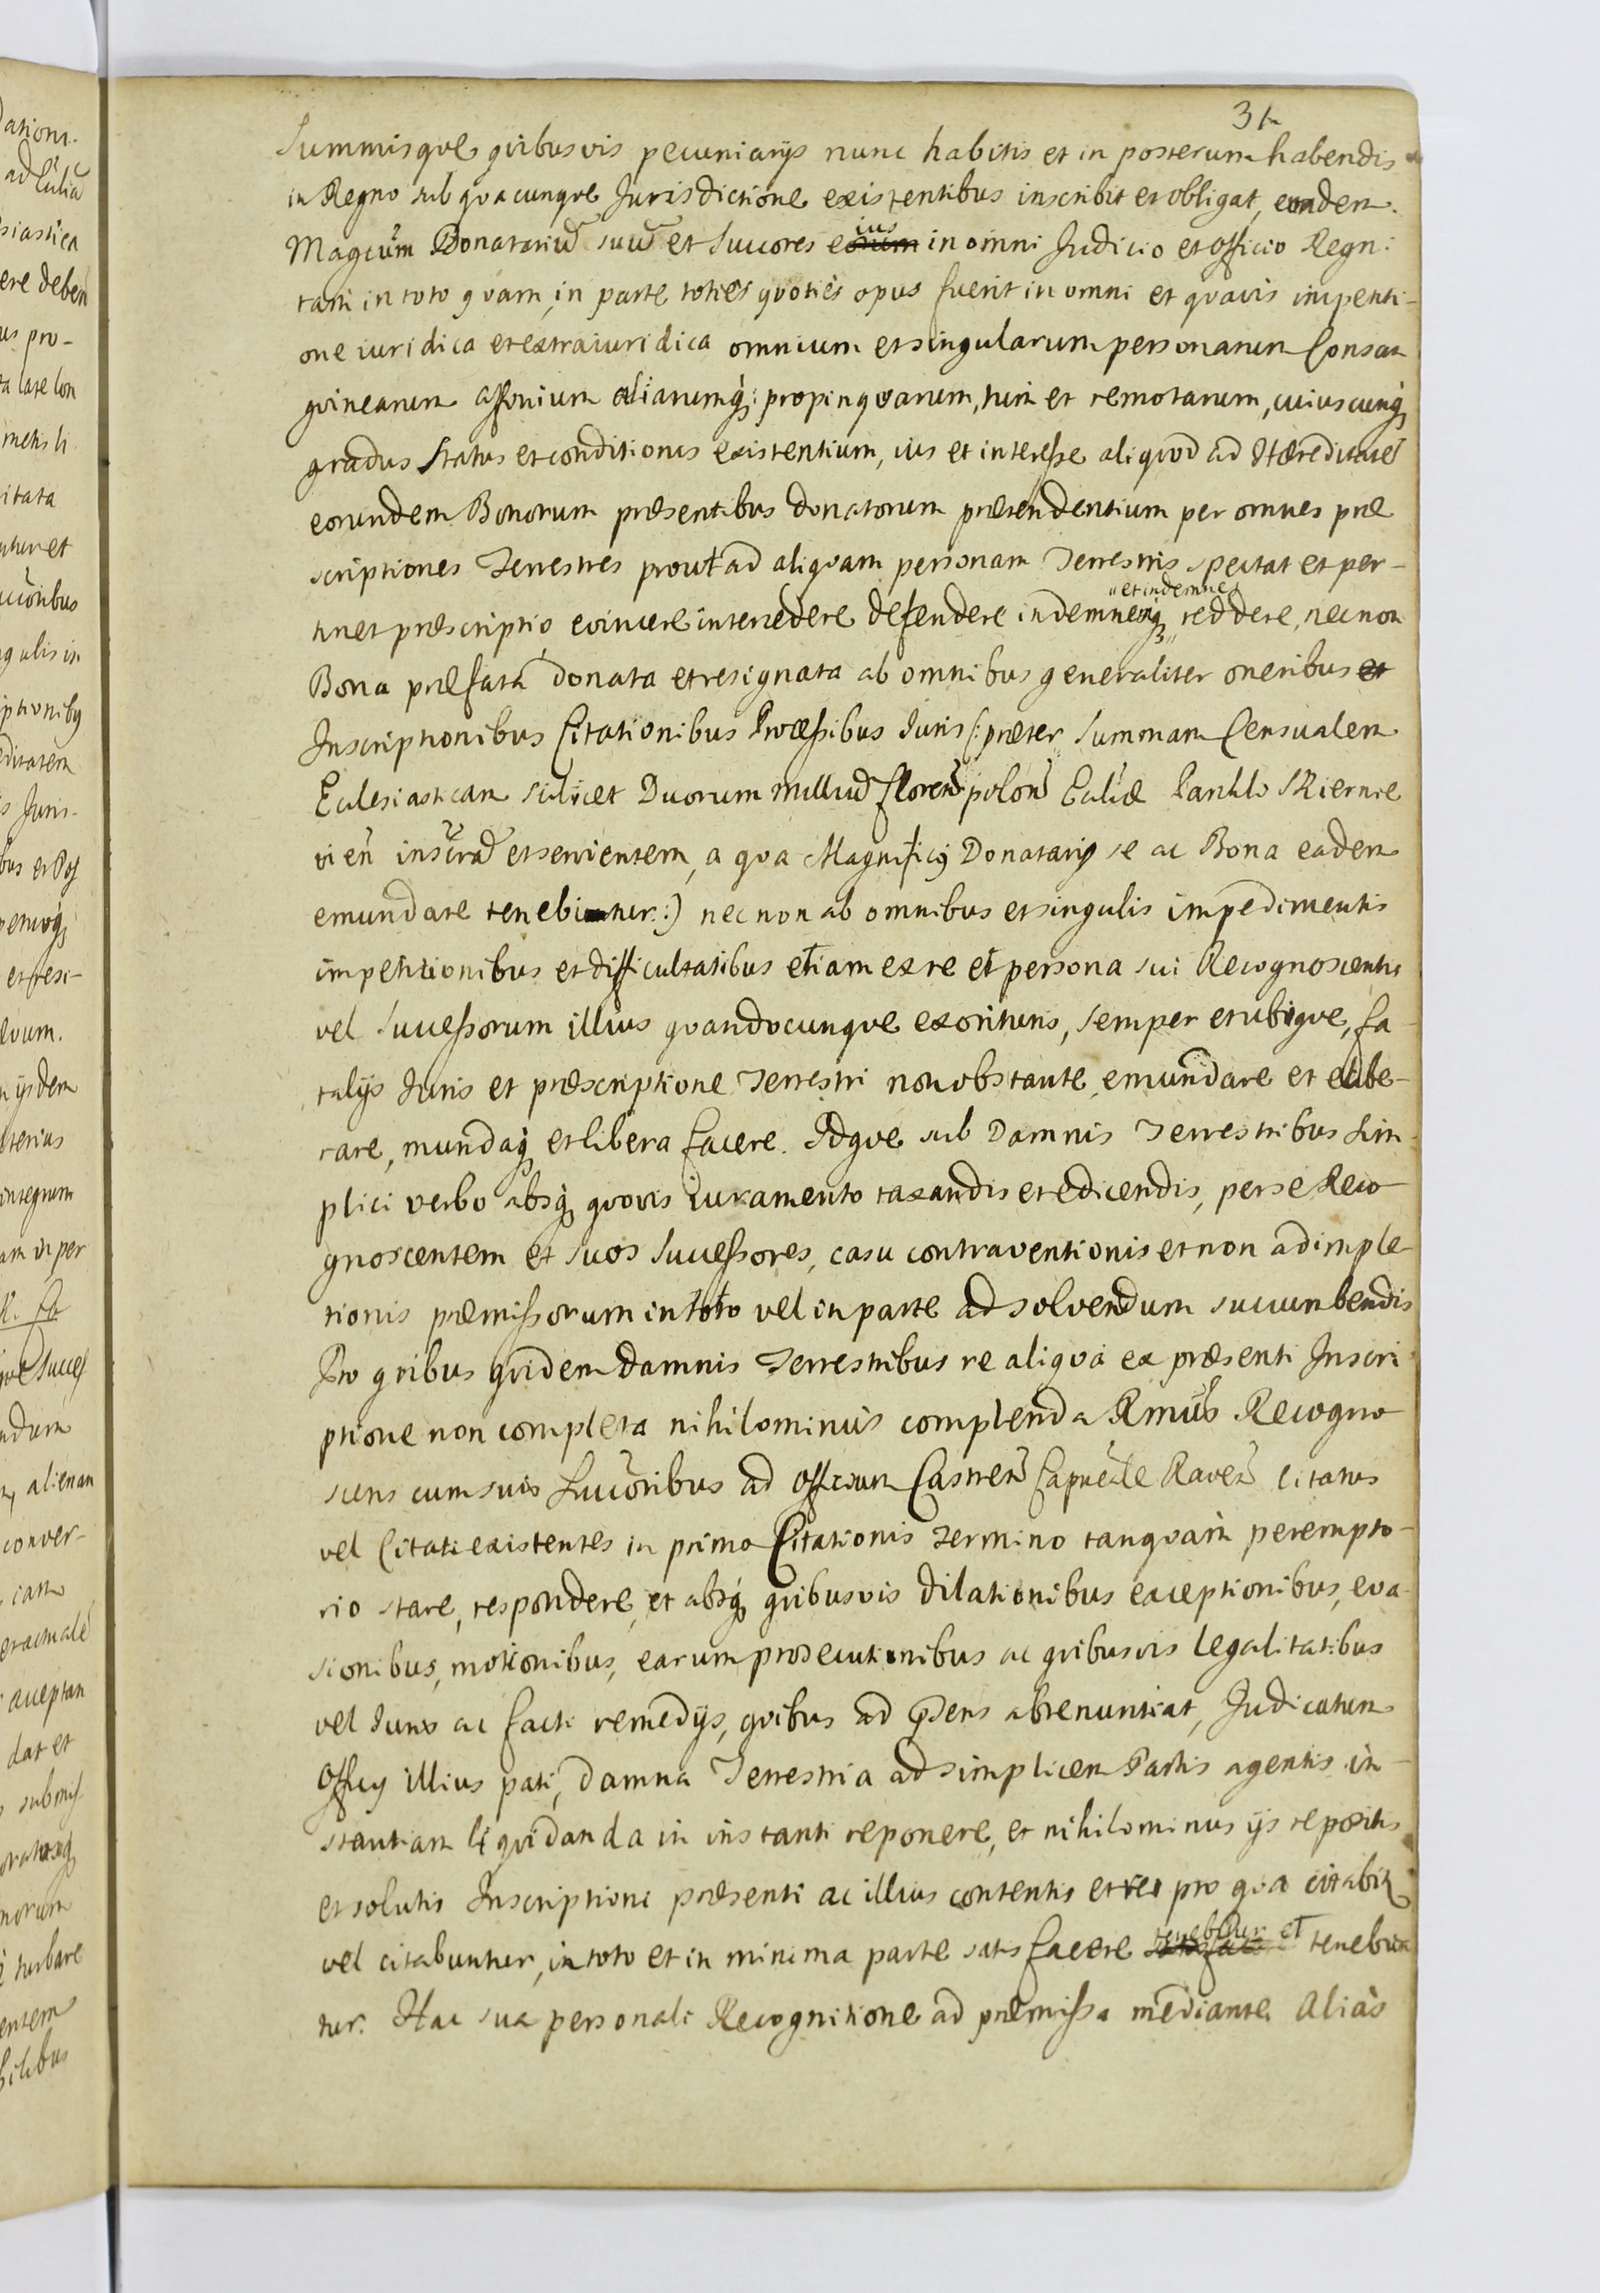 31
Summisque quibusvis pecuniarijs nunc habitis et in posterum habendis
in Regno sub quacunque Jurisdictione existentibus inscribit et obligat, eundem
Magcum Donatariũ suũ et Succores eius in omni Judicio et Officio Regni
tam in toto quam, in parte toties quoties opus fuerit in omni et quavis impeti-
one iuridica et extraiuridica omnium et singularum personarum Consan
guinearum affinium aliarumq; propinquarum, tum et remotarum, cuiuscunq;
gradus status et conditionis existentium, ius et interesse aliquod ad Hæreditatē
eorundem Bonorum præsentibus donatorum prætendentium per omnes præ
scriptiones Terrestres prout ad aliquam personam Terrestris spectat et per-
tinet præscriptio, evincere intercedere defendere indemnesq et indemnes reddere, nec non
Bona præfata donata et resignata ab omnibus generaliter oneribus et
Inscriptionibus Citationibus Processibus Juris (: præter Summam Censualem
Eclesiasticam scilicet Duorum milliũ florenẽ polonẽ Ecliæ Parchlo Skiernie
vien̄ inscrã et servientem, a qua Magnificj Donatarij se ac Bona eadem
emundare tenebitur:) nec non ab omnibus et singulis impedimentis
impetitionibus et difficultatibus etiam ex re et persona sui Recognoscentis
vel Successorum illius quandocunque exorituris, semper et ubique, fa
talijs Juris et præscriptione Terrestri non obstante, emundare et elibe-
rare, mundaq; et libera facere. Idque sub Damnis Terrestribus Sim-
plici verbo absq; quovis iuramento taxandis et edicendis, per se Reco
gnoscentem et suos Successores, casu contraventionis et non adimple-
tionis præmissorum in toto vel in parte ad solvendum succumbendis
Pro quibus quidem damnis Terrestribus re aliqua ex præsenti Inscri
ptione non completa nihilominus complenda Rmus Recogno
scens cum suis Succoribus ad Officium Castren̄ Capneale Raven̄ citatus
vel Citati existentes in primo Citationis termino tanquam perempto-
rio stare, respondere, et absq; quibusvis dilationibus exceptionibus, eva-
sionibus, motionibus, earum prosecutionibus ac quibusvis legalitatibus
vel Juris ac facti remedijs, quibus ad pṡens abrenuntiat, Judicatum
Officij illius pati, damna Terrestria ad simplicem Partis agentis in-
stantiam liquidanda in instanti reponere, et nihilominus ijs repositis
et solutis Inscriptioni præsenti ac illius contentis et rei pro qua citabit
vel citabuntur, in toto et in minima parte satisfacere tenebitur et tenebun
tur. Hac sua personali Recognitione ad præmissa mediante. Alias